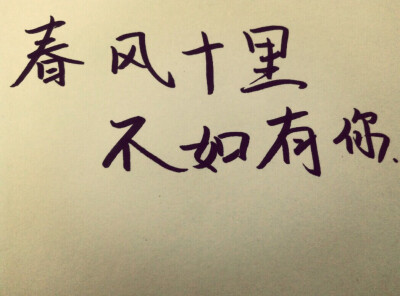 春风十里
不如有你.